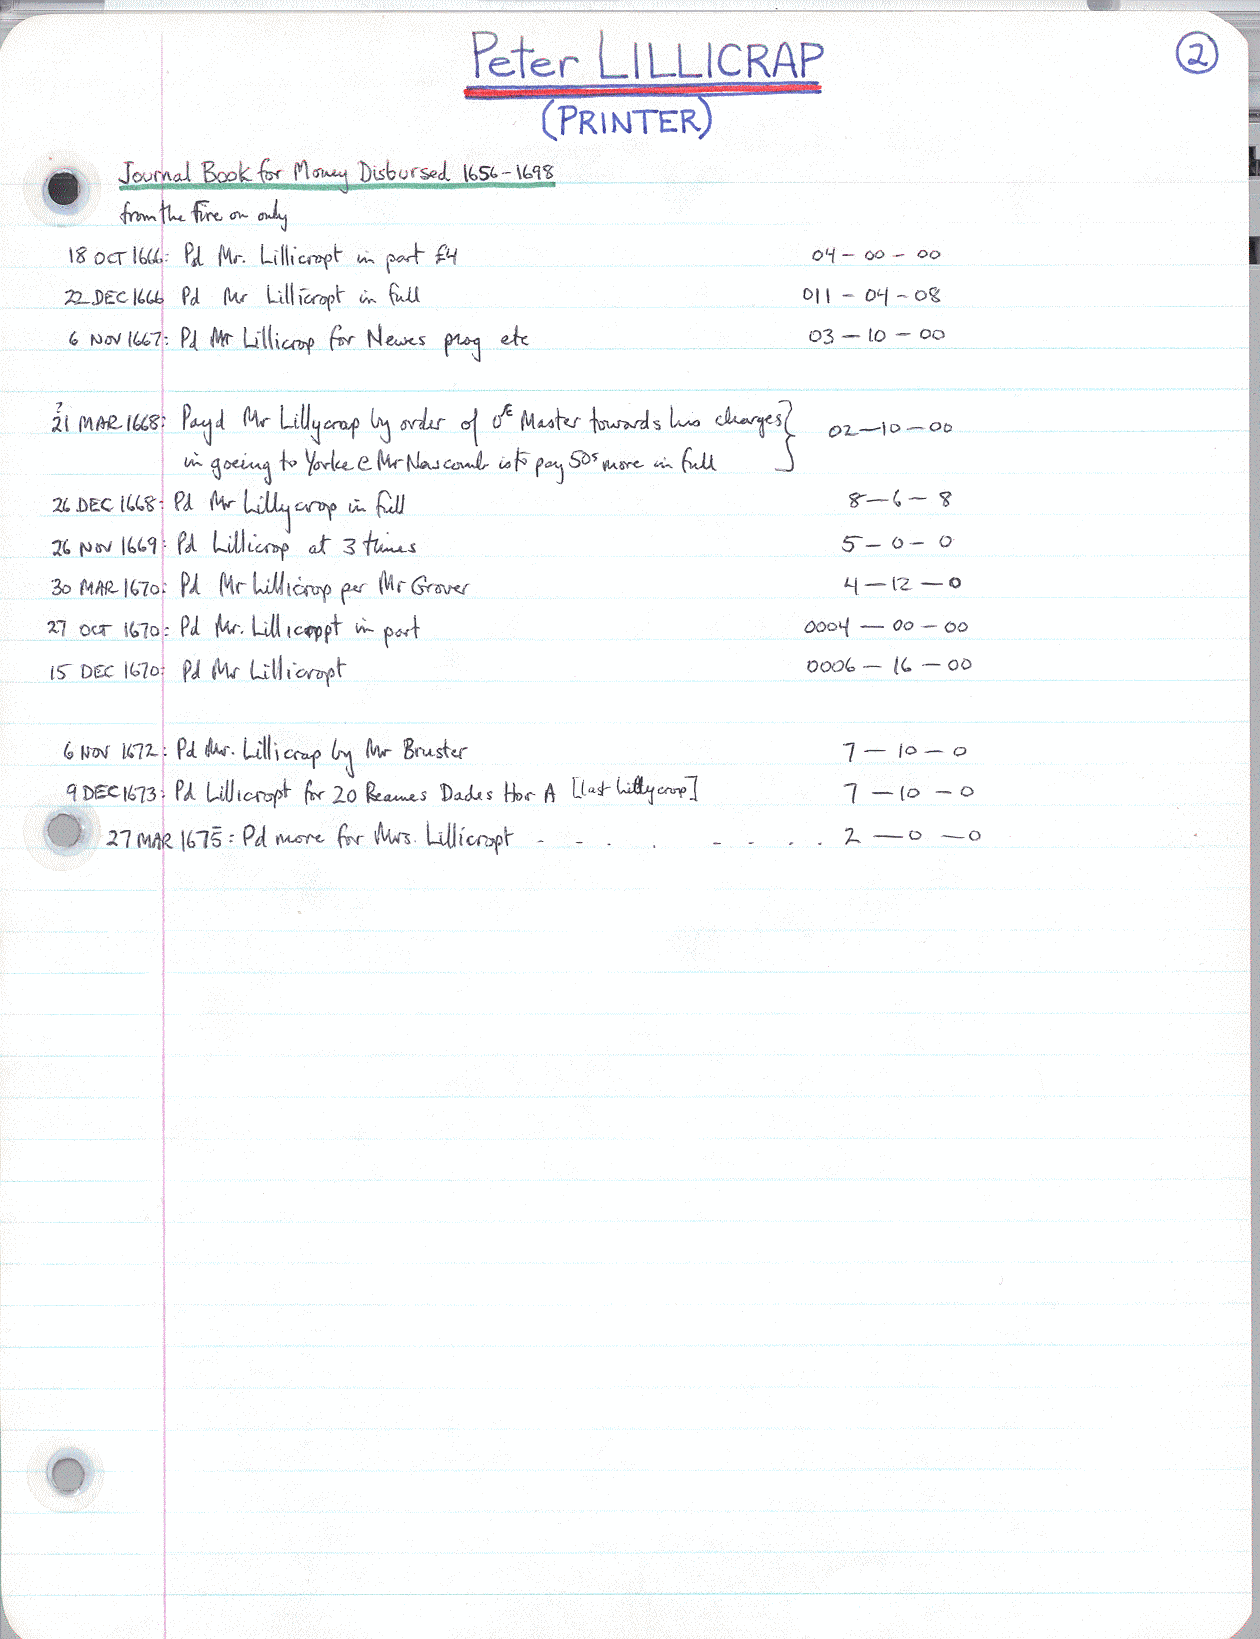 Peter LILLICRAP
2
(PRINTER)
Journal Book for Money Disbursed 1656-1698
from the Fire on only
18 OCT 1666: Pd Mr. Lillicropt in part £4 04 - 00 - 00
22 DEC 1666 Pd Mr Lillicropt in full 011 - 04 - 08
6 NOV 1667: Pd Mr Lillicrop for Newes prog etc 03 - 10 - 00
?
21 MAR 1668: Payd Mr Lillycrap by order of Master towards his charges 02 - 10 - 00
in goeing to Yorke & Mr Newcomb is to pay 50s more in full
26 DEC 1668: Pd Mr Lillycrop in full 8 - 6 - 8
26 NOV 1669: Pd Lillicrop at 3 times 5 - 0 - 0
30 MAR 1670: Pd Mr Lillicrop per Mr Grover 4 - 12 - 0
27 OCT 1670: Pd Mr. Lillicroppt in part 0004 - 00 - 00
15 DEC 1670: Pd Mr Lillicropt 0006 - 16 - 00
6 NOV 1672: Pd Mr. Lillicrap by Mr Bruster 7 - 10 - 0
9 DEC 1673: Pd Lillicropt for 20 Reames Dades Hor A [last Lillycrop] 7 - 10 - 0
27 MAR 1675: Pd more for Mrs. Lillicropt - - . . - - . . . 2 - 0 - 0